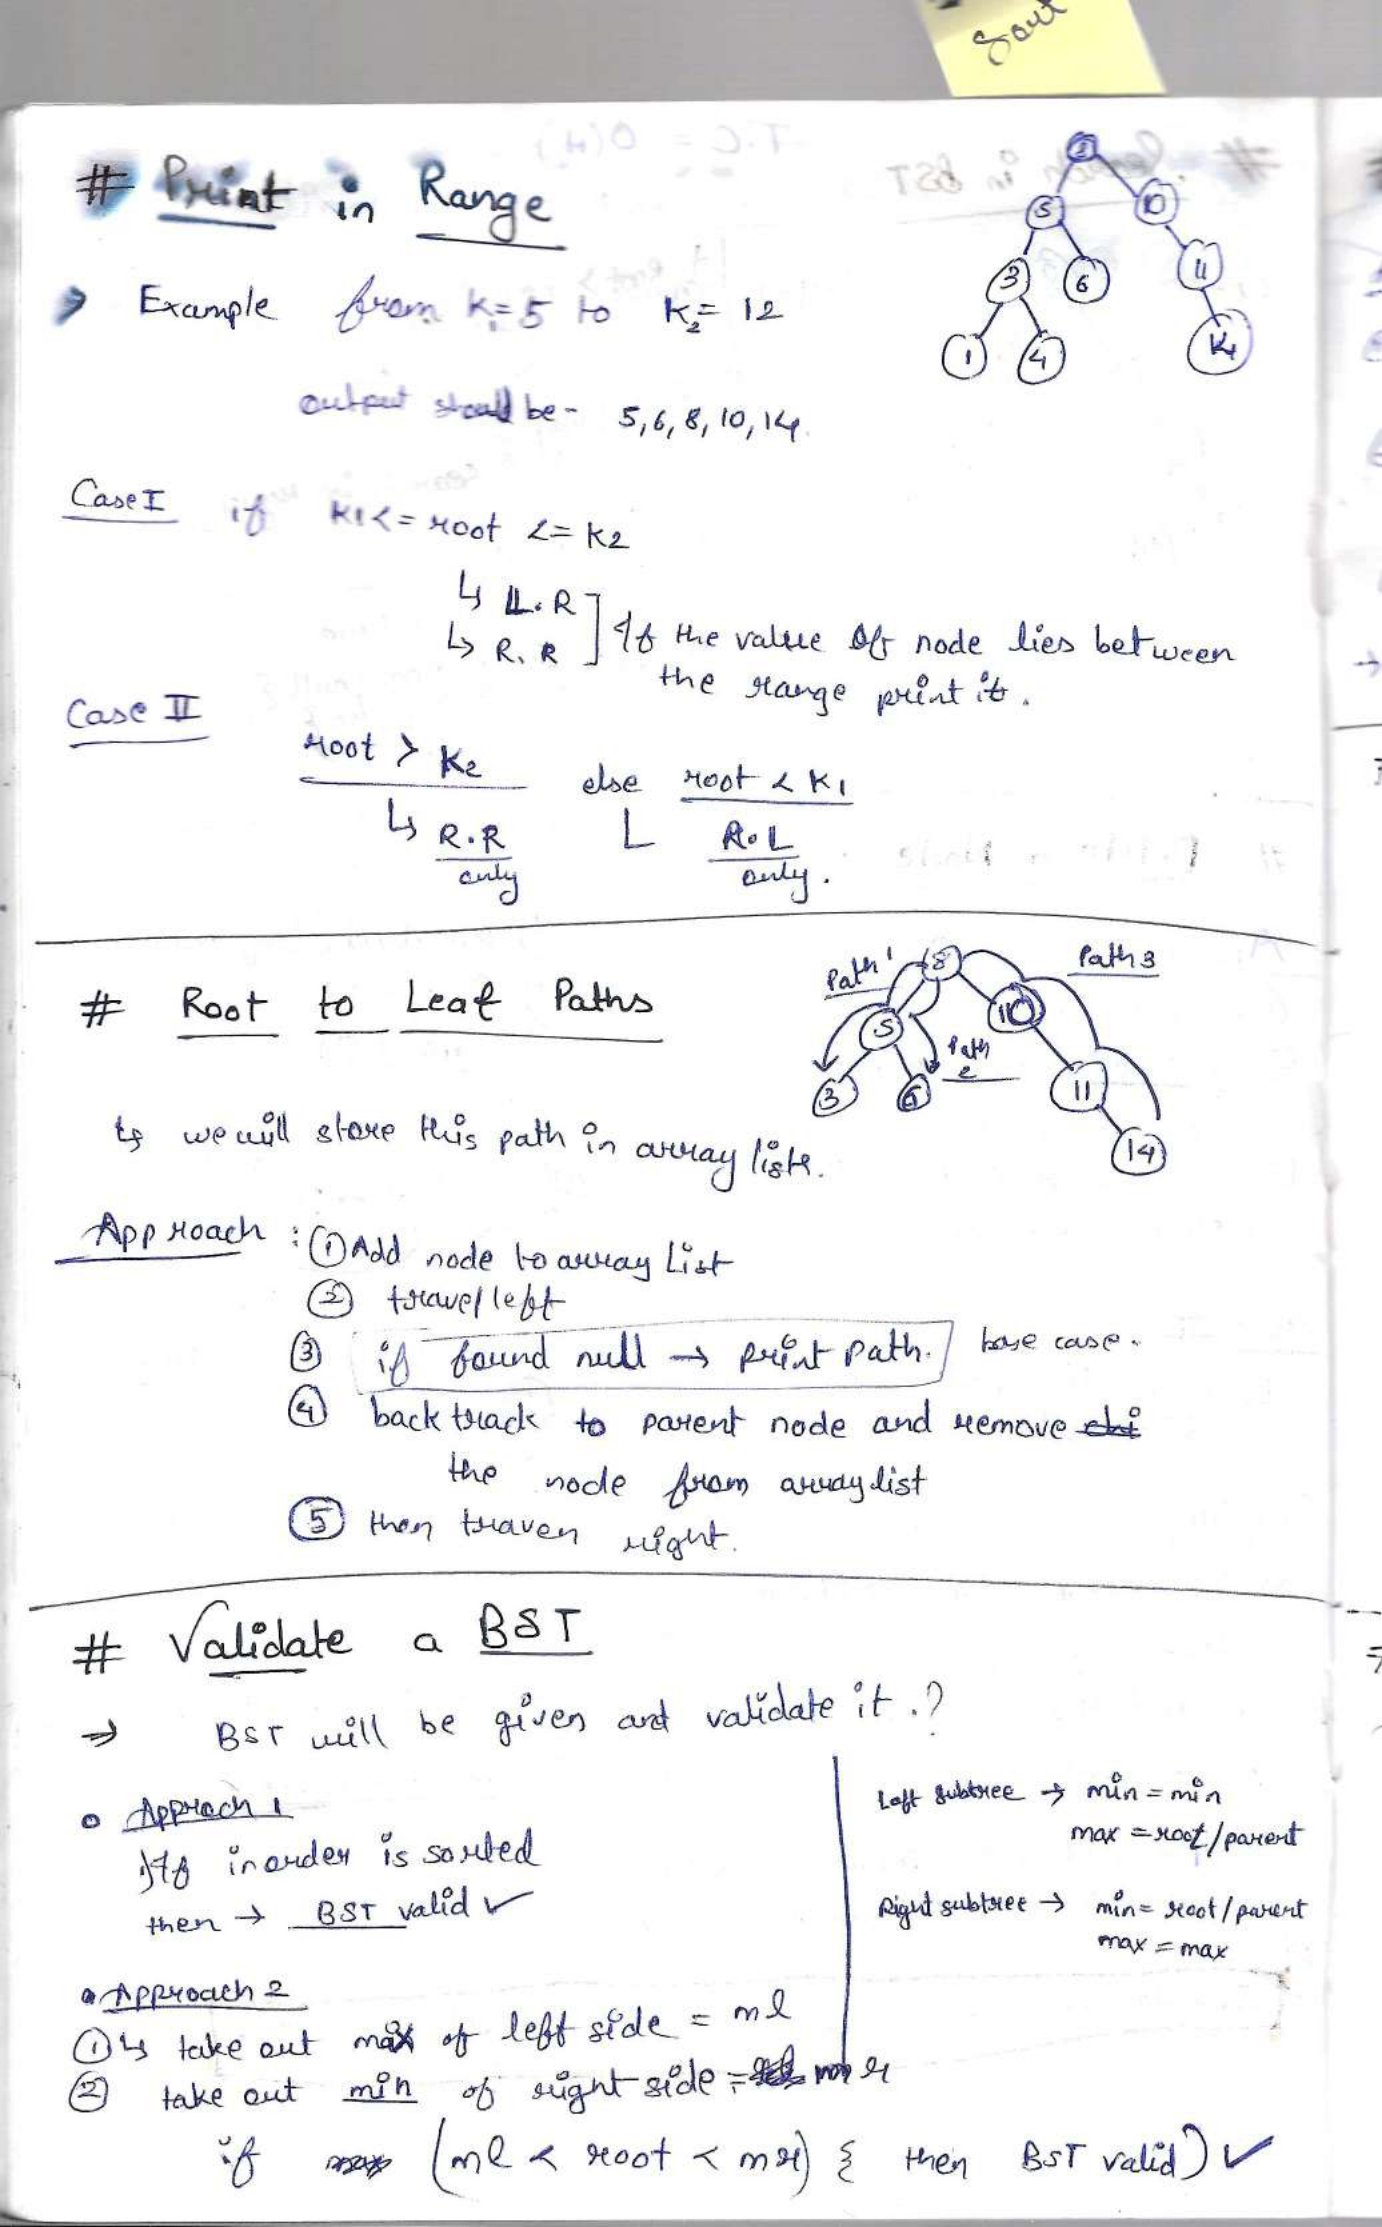 Sort
# Print in Range
8
5 10
3 6 11
1 4 14
→ Example from K1=5 to K2=12
output should be- 5,6,8,10,14.
Case I if K1<=root <=K2
↳ L.R
↳ R.R ] If the value of node lies between
the range print it.
Case II
root > K2 else root < K1
↳ R.R └ R.L
only only.
# Root to Leaf Paths
Path 1 8 Path 3
5 10
Path 2
3 6 11
14
↳ we will store this path in array list.
Approach : ① Add node to array List
② travel left
③ if found null → print path. base case.
④ back track to parent node and remove
the node from arraylist
⑤ then traven right.
# Validate a BST
⇒ BST will be given and validate it.?
Left subtree → min = min
max = root/parent
Right subtree → min = root/parent
max = max
• Approach 1
If inorder is sorted
then → BST valid ✓
• Approach 2
① ↳ take out max of left side = ml
② take out min of right side = mr
if (ml < root < mr) { then BST valid) ✓